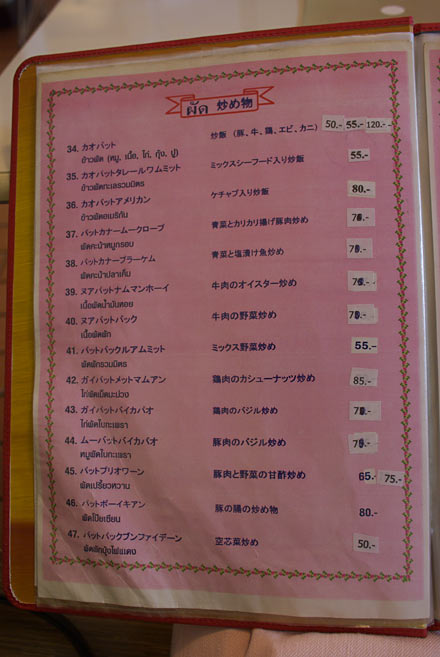 ผัด 炒め物
34. カオパット 炒飯 (豚、牛、鶏、エビ、カニ) 50.- 55.- 120.-
ข้าวผัด (หมู, เนื้อ, ไก่, กุ้ง, ปู)
35. カオパットタレールワムミット ミックスシーフード入り炒飯 55.-
ข้าวผัดทะเลรวมมิตร
36. カオパットアメリカン ケチャプ入り炒飯 80.-
ข้าวผัดอเมริกัน
37. パットカナームークローブ 青菜とカリカリ揚げ豚肉炒め
ผัดคะน้าหมูกรอบ
38. パットカナープラーケム 青菜と塩漬け魚炒め
ผัดคะน้าปลาเค็ม
39. ヌアパットナムマンホーイ 牛肉のオイスター炒め
เนื้อผัดน้ำมันหอย
40. ヌアパットパック 牛肉の野菜炒め
เนื้อผัดผัก
41. パットパックルアムミット ミックス野菜炒め 55.-
ผัดผักรวมมิตร
42. ガイパットメットマムアン 鶏肉のカシューナッツ炒め 85.-
ไก่ผัดเม็ดมะม่วง
43. ガイパットバイカパオ 鶏肉のバジル炒め
ไก่ผัดใบกะเพรา
44. ムーパットバイカパオ 豚肉のバジル炒め
หมูผัดใบกะเพรา
45. パットプリオワーン 豚肉と野菜の甘酢炒め 65.- 75.-
ผัดเปรี้ยวหวาน
46. パットポーイキアン 豚の腸の炒め物 80.-
ผัดโป๊ยเซียน
47. パットパックブンファイデーン 空芯菜炒め 50.-
ผัดผักบุ้งไฟแดง